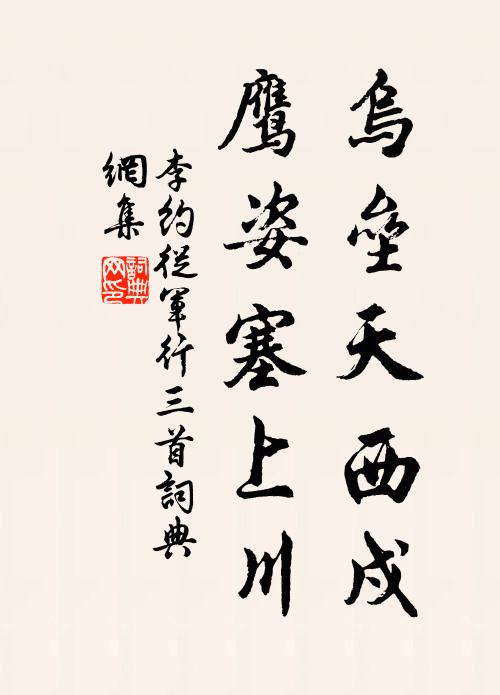 烏壘天西戍
鷹姿塞上川
李約從軍行三首詞典
網集
詞典
网印